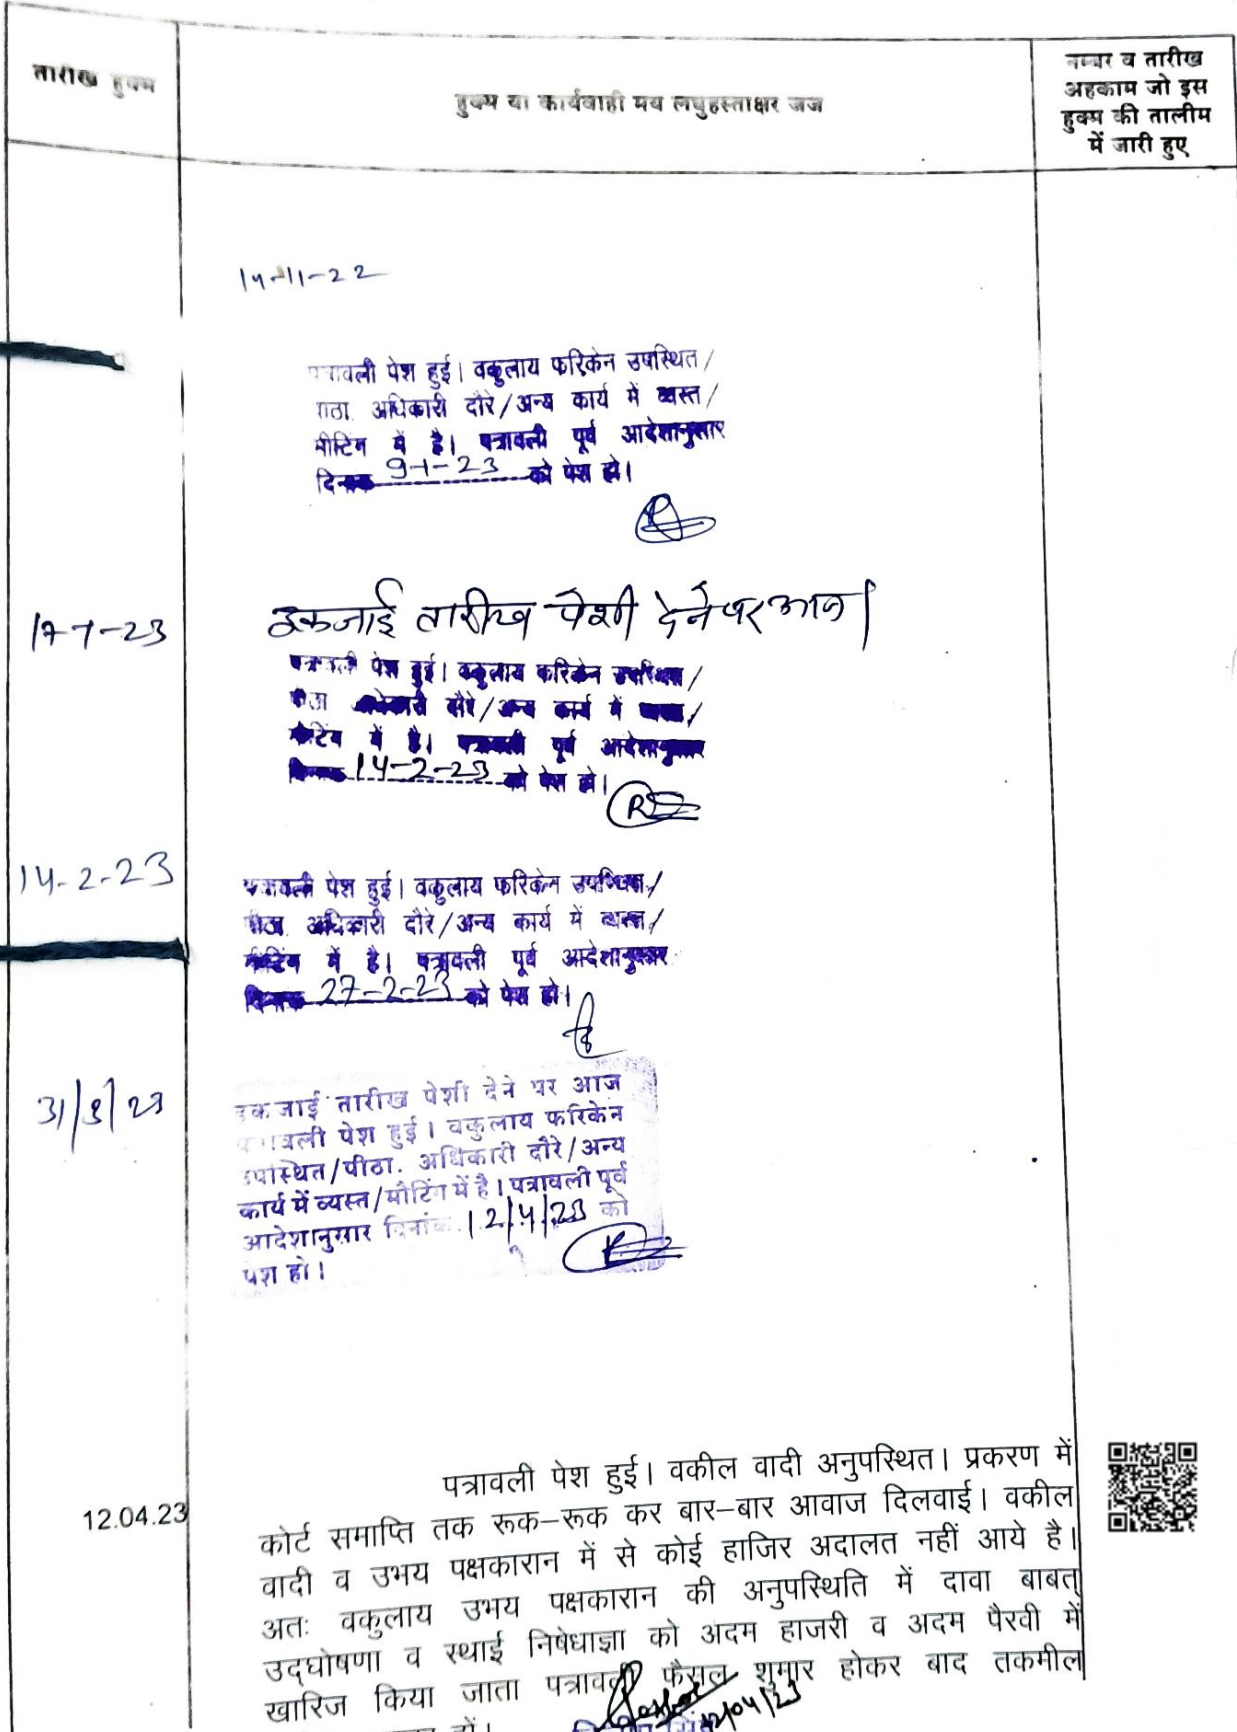 तारीख हुक्म
हुक्म या कार्यवाही मय लघुहस्ताक्षर जज
नम्बर व तारीख
अहकाम जो इस
हुक्म की तालीम
में जारी हुए
14-11-22
पत्रावली पेश हुई। वकुलाय फरिकेन उपस्थित/
पीठा. अधिकारी दौरे/अन्य कार्य में व्यस्त/
मीटिंग में है। पत्रावली पूर्व आदेशानुसार
दिनांक 9-1-23 को पेश हो।
17-1-23
इकजाई तारीख पेशी देने पर आज।
पत्रावली पेश हुई। वकुलाय फरिकेन उपस्थित/
पीठा अधिकारी दौरे/अन्य कार्य में व्यस्त/
मीटिंग में है। पत्रावली पूर्व आदेशानुसार
दिनांक 14-2-23 को पेश हो।
14-2-23
पत्रावली पेश हुई। वकुलाय फरिकेन उपस्थित/
पीठा. अधिकारी दौरे/अन्य कार्य में व्यस्त/
मीटिंग में है। पत्रावली पूर्व आदेशानुसार
दिनांक 27-2-23 को पेश हो।
31/3/23
इकजाई तारीख पेशी देने पर आज
पत्रावली पेश हुई। वकुलाय फरिकेन
उपस्थित/पीठा. अधिकारी दौरे/अन्य
कार्य में व्यस्त/मीटिंग में है। पत्रावली पूर्व
आदेशानुसार दिनांक 12/4/23 को
पेश हो।
12.04.23
पत्रावली पेश हुई। वकील वादी अनुपस्थित। प्रकरण में
कोर्ट समाप्ति तक रूक–रूक कर बार–बार आवाज दिलवाई। वकील
वादी व उभय पक्षकारान में से कोई हाजिर अदालत नहीं आये है।
अतः वकुलाय उभय पक्षकारान की अनुपस्थिति में दावा बाबत्
उद्घोषणा व स्थाई निषेधाज्ञा को अदम हाजरी व अदम पैरवी में
खारिज किया जाता पत्रावली फैसल शुमार होकर बाद तकमील
12/04/23